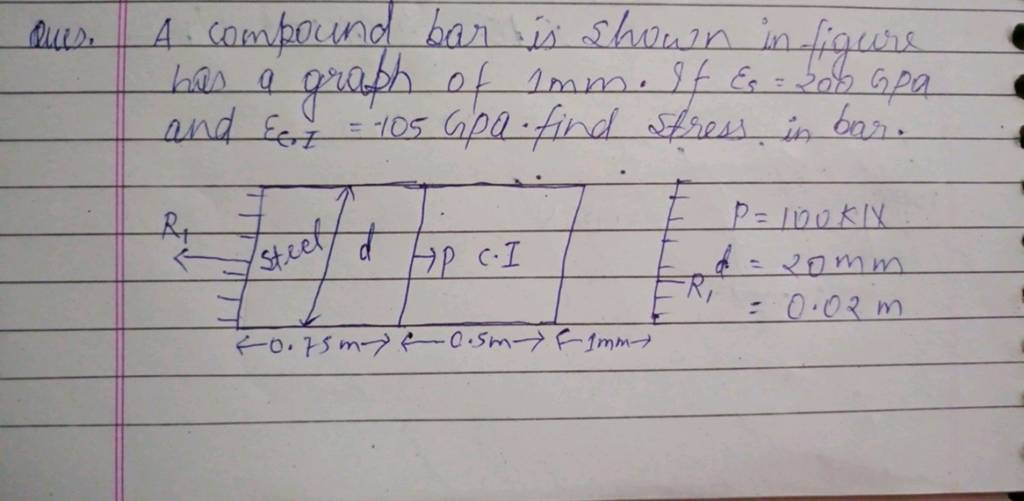 Ques. A compound bar is shown in figure
has a graph of 1mm. If Es = 200 GPa
and Ec.I = 105 GPa. find stress in bar.
R1 steel d P C.I R1 P = 100KN
d = 20mm
= 0.02 m
0.75m 0.5m 1mm